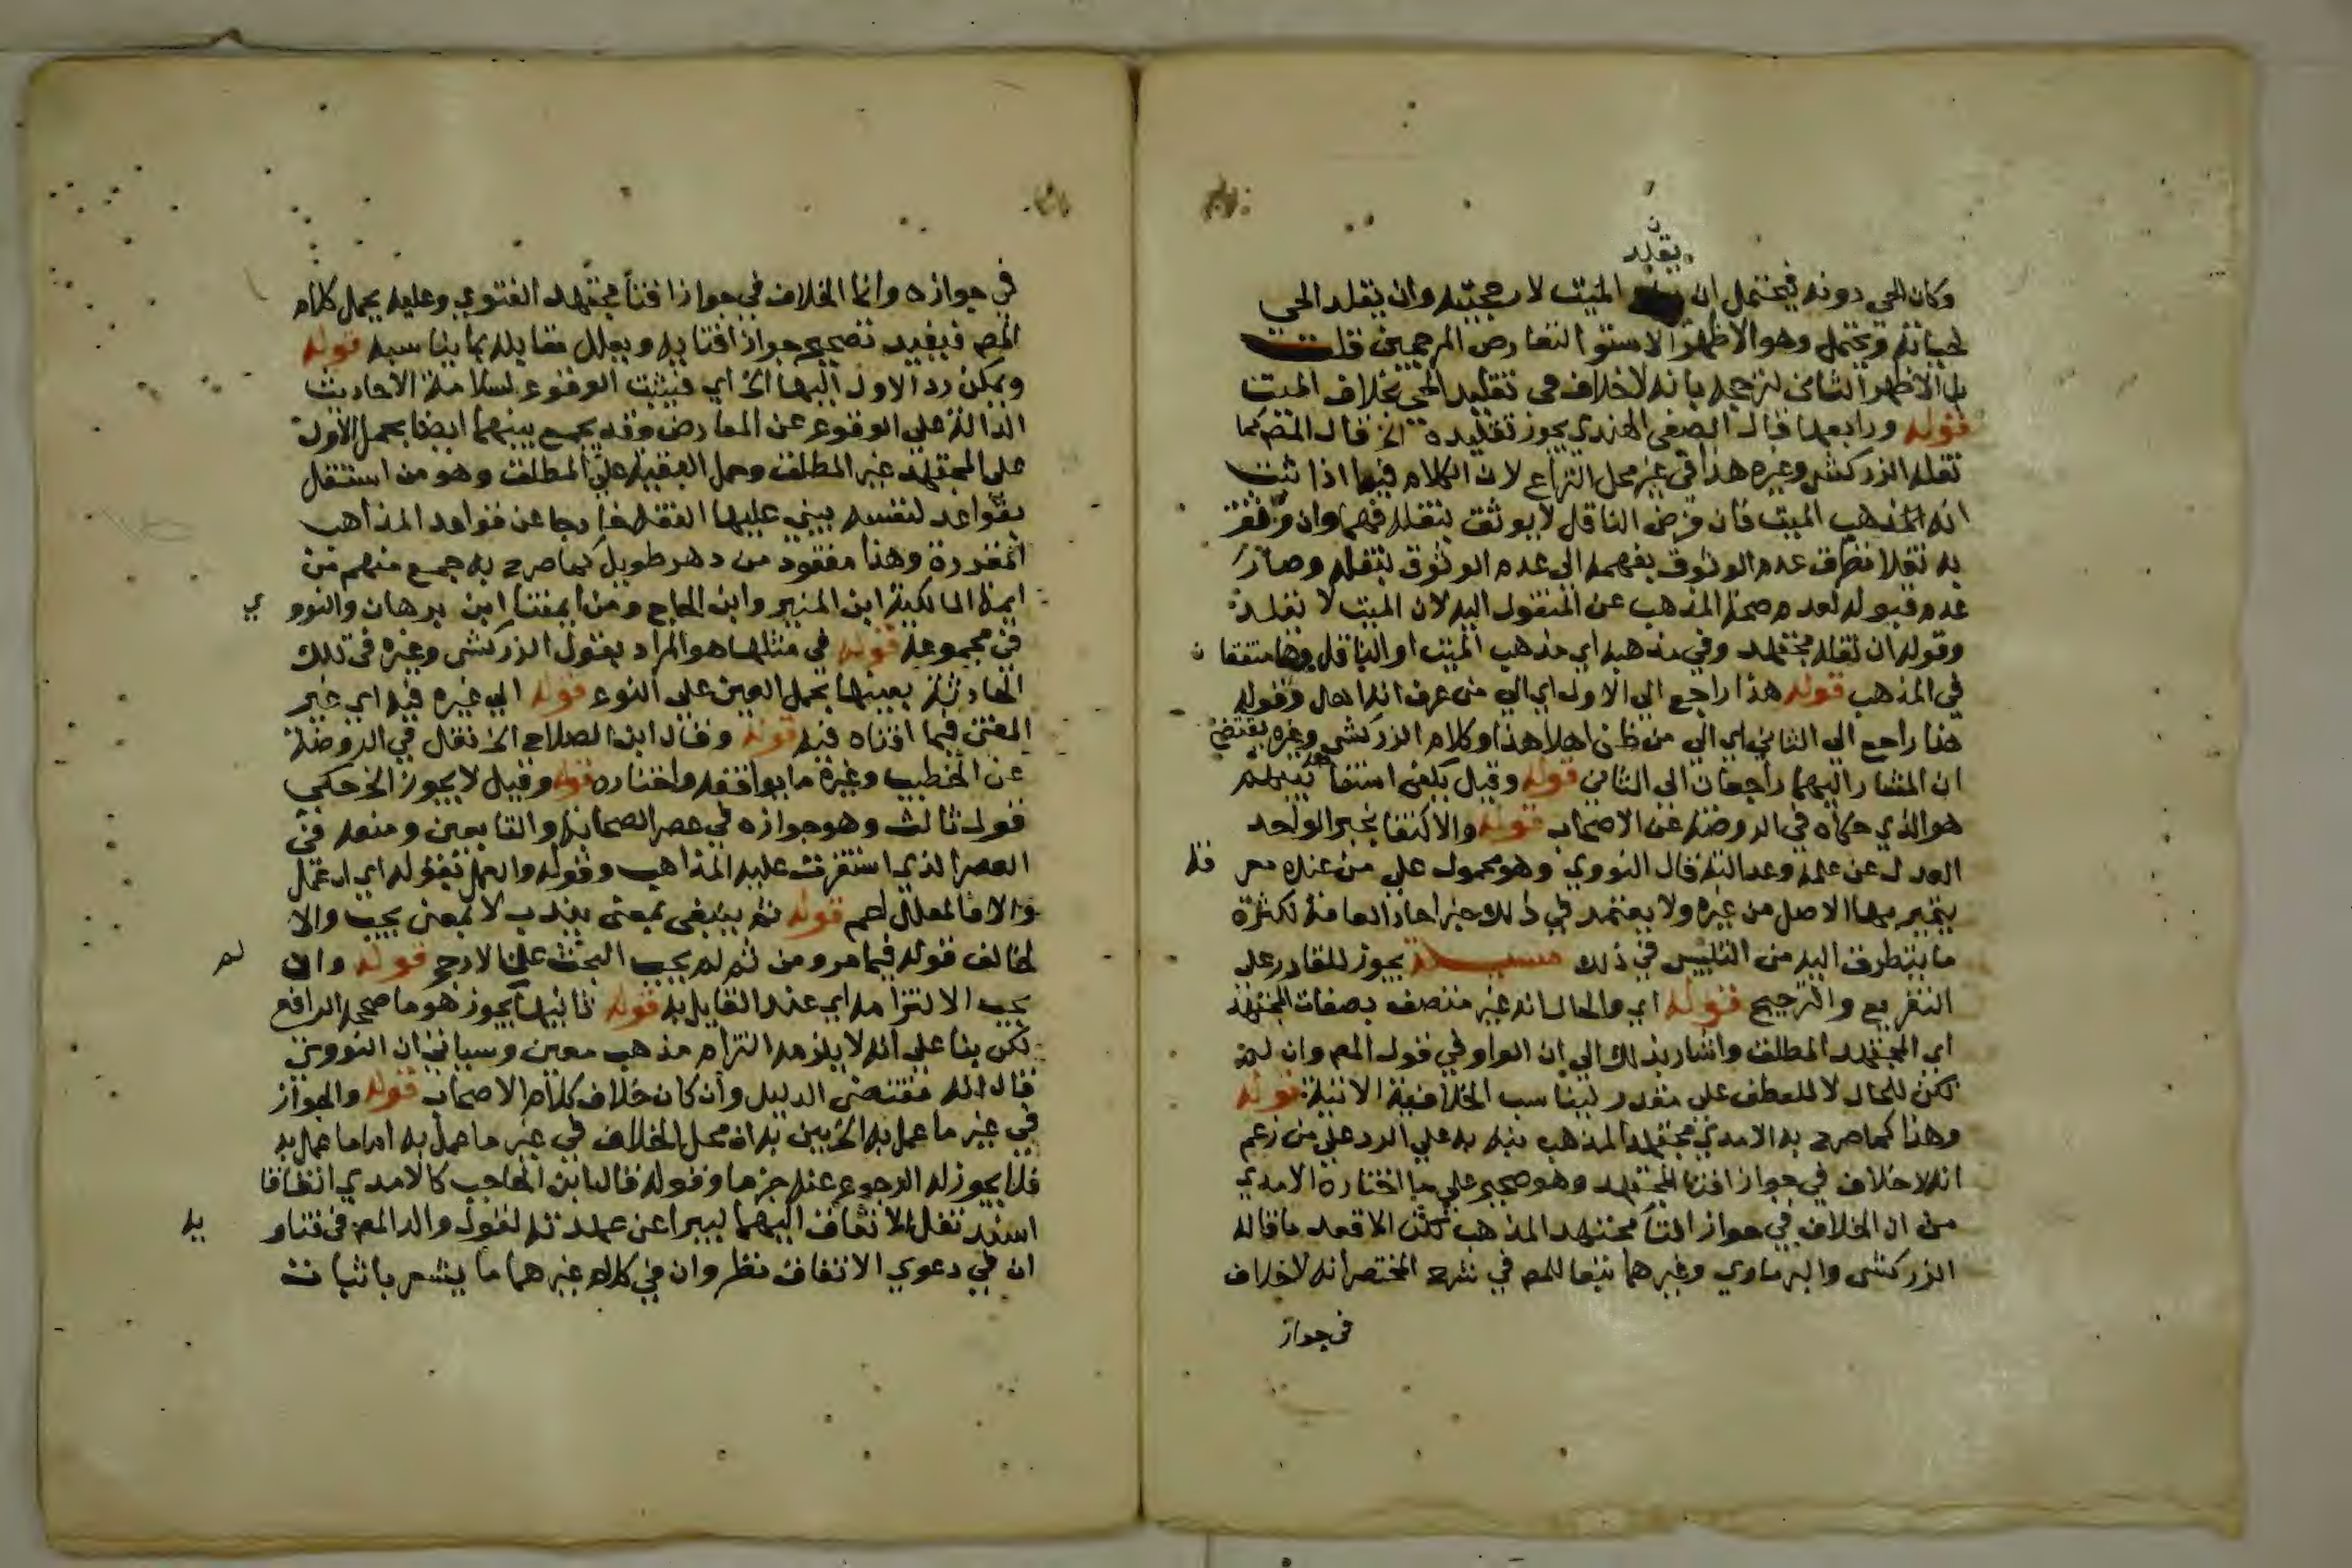 يقلد ن
وكان الحي دونه فيحتمل ان الميت لارجحيته وان يقلد الحي
لحياته ويحتمل وهو الاظهر الاستوا لتعارض المرجحين قلت
بل الاظهر الثاني لترجحه بانه لا خلاف في تقليد الحي بخلاف الميت
قوله ورابعها قال الصفي الهندي يجوز تقليده الخ قال المص كما
نقله الزركشي وغيره هذا في غير محل النزاع لان الكلام فيما اذا ثبت
انه المذهب الميت فان فرض الناقل لا يوثق بنقله فهما وان وثق
به نقلا تطرق عدم الوثوق بفهمه الى عدم الوثوق بنقله وصار
عدم قبوله لعدم صحة المذهب عن المنقول اليه لان الميت لا يقلد
وقوله ان نقله مجتهد وفي مذهبه اي مذهب الميت او الناقل وهما متفقان
في المذهب قوله هذا راجع الى الاول اي الى من عرف انه اهل وقوله
هنا راجع الى الثاني اي الى من ظن اهلا هذا وكلام الزركشي وغيره يقتضي
ان المشار اليهما راجعان الى الثاني قوله وقيل يكفي استفا بينهم
هو الذي حكاه في الروضة عن الاصحاب قوله والاكتفا بخبر الواحد
العدل عن علمه وعدالته قال النووي وهو محمول على من عنده معرفة
يتميز بها الاصل من غيره ولا يعتمد في ذلك خبر احاد العامة لكثرة
ما يتطرق اليه من التلبيس في ذلك مسئلة يجوز للقادر على
التفريع والترجيح قوله اي والحال انه غير متصف بصفات المجتهد
اي المجتهد المطلق واشار بذلك الى ان الواو في قول المص وان لم
يكن للحال لا للعطف على مقدر ليناسب الخلافية الاتية قوله
وهذا كما صرح به الامدي مجتهد المذهب نبه به على الرد على من زعم
انه لا خلاف في جواز افتا المجتهد وهو صحيح على ما اختاره الامدي
من ان الخلاف في جواز افتا مجتهد المذهب لكن الاقعد ما قاله
الزركشي والبرماوي وغيرهما تبعا للمص في شرح المختصر انه لا خلاف
في جواز
في جوازه وانما الخلاف في جواز افتا مجتهد الفتوي وعليه يحمل كلام
المص فيفيد تصحيح جواز افتايه ويعلل مقابله بما يناسبه قوله
ويمكن رد الاول اليها الخ اي فيثبت الوقوع لسلامة الاحاديث
الدالة على الوقوع عن المعارض وقد يجمع بينهما ايضا بحمل الاول
على المجتهد غير المطلق وحمل البقية على المطلق وهو من استقل
بقواعد لنفسه يبني عليها الفقه خارجا عن قواعد المذاهب
المقررة وهذا مفقود من دهر طويل كما صرح به جمع منهم من
ايمة المالكية ابن المنير وابن الحاج ومن ايمتنا ابن برهان والنووي
في مجموعه قوله في مثلها هو المراد بقول الزركشي وغيره في تلك
الحادثة بعينها بحمل العين على النوع قوله الى غيره فيه اي غير
المفتي فيما افتاه فيه قوله وقال ابن الصلاح الخ نقل في الروضة
عن الخطيب وغيره ما يوافقه واختاره قوله وقيل لا يجوز الخ حكي
قول ثالث وهو جوازه في عصر الصحابة والتابعين ومنعه في
العصر الذي استقرت عليه المذاهب وقوله والعمل بقوله اي ان عمل
والا فالمعلل لعم قوله ثم ينبغي بمعنى يندب لا بمعنى يجب والا
لخالف قوله فيما مر ومن ثم لم يجب البحث على الارجح قوله وان لم
يجب الالتزامه اي عند القايل به قوله ثانيها يجوز هو ما صححه الرافع
لكن بنا على انه لا يلزمه التزام مذهب معين وسياتي ان النووي
قال انه مقتضى الدليل وان كان خلاف كلام الاصحاب قوله والجواز
في غير ما عمل به الخ بين به ان محل الخلاف في غير ما عمل به اما ما عمل به
فلا يجوز له الرجوع عنه جزما وقوله قال ابن الحاجب كالامدي اتفاقا
اسند نقل الاتفاق اليهما ليبرا عن عهدته لقول والد المص في فتاويه
ان في دعوي الاتفاق نظر وان في كلام غيرهما ما يشعر باثبات